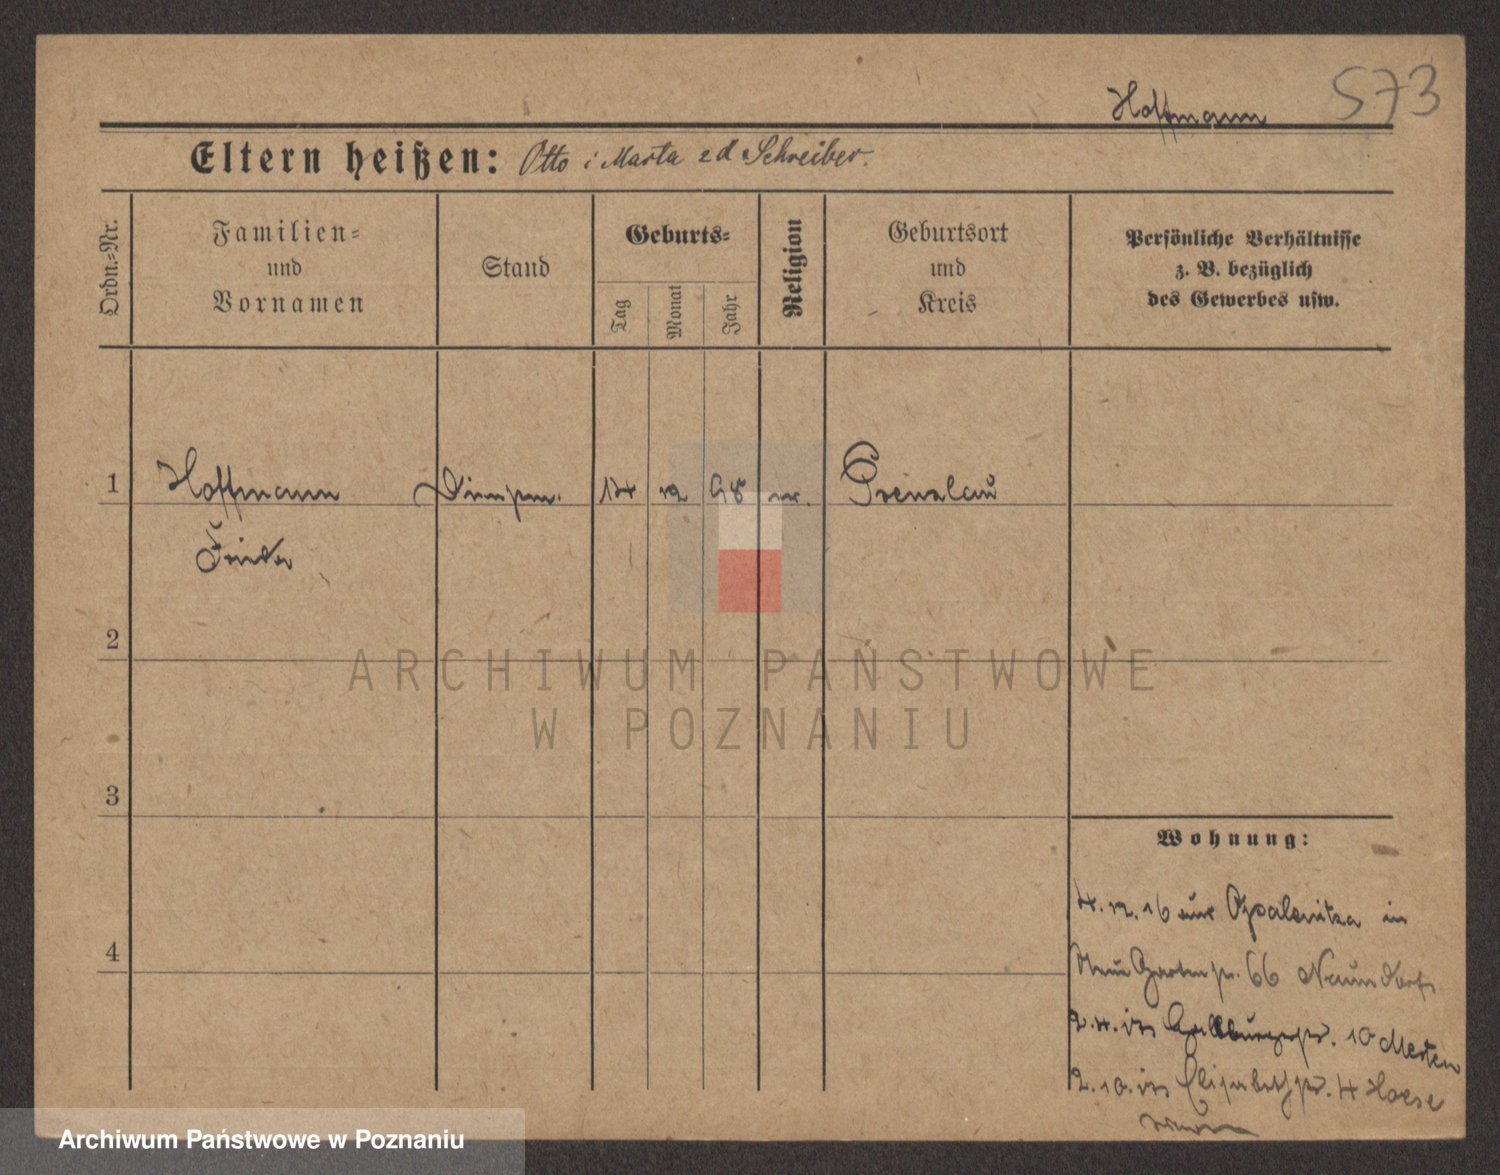 573
Hoffmann
Eltern heißen: Otto i Marta zd Schreiber.
Ordn.-Nr.
Familien-
und
Vornamen
Stand
Geburts-
Tag
Monat
Jahr
Religion
Geburtsort
und
Kreis
Persönliche Verhältnisse
z. B. bezüglich
des Gewerbes usw.
1 Hoffmann 98 Prenzlau
2
3
4
Wohnung:
4.12.16 aus Opalenitza in
Neue Gartenstr. 66 Naundorf
2.4. 10 Merten
2.10. Elisabethstr. 4 Hoese
ARCHIWUM PAŃSTWOWE
W POZNANIU
Archiwum Państwowe w Poznaniu